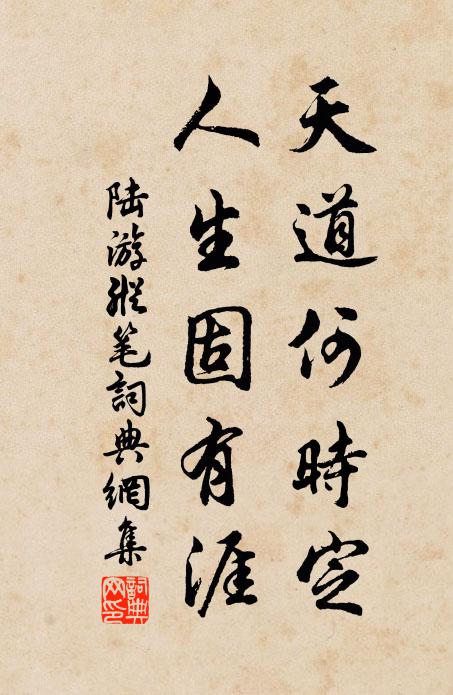 天道何時定
人生固有涯
陆游縱笔詞典網集
詞典网印